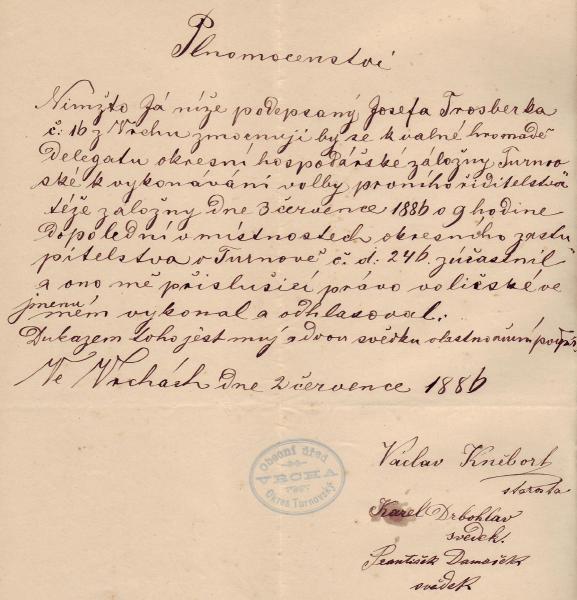 Plnomocenství
Nimžto Já níže podepsaný Josefa Trosberka
č: 16 z Vrchu zmocnuji by se k valné hromadě
Delegatu okresní hospodářské záložny Turnov
ské k vykonávání volby prvního řiditelstva
téže záložny dne 3 července 1886 o 9 hodine
Dopolední v místnostech okresního zastu
pitelstva v Turnově č. d: 246. zúčastnil
a ono mě přislušící právo voličské ve
jmenu
mém vykonal a odhlasoval.
Dukazem toho jest muj a dvou svědku vlastnoruční
Ve Vrchách dne 2 července 1886
Obecní úřad
VRCHA
Okres Turnovský
Václav Knébort
starosta
Karel Drbohlav
svědek.
František Damašek
svědek